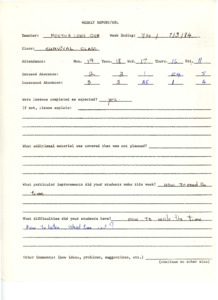 WEEKLY REPORTER
Teacher:
Week Ending:
Class: SURVIVAL CLASS
Attendance: Mon. 19 Tues. 18 Wed. 17 Thurs. 16 Fri.
Excused Absence:
Unexcused Absence:
Were lessons completed as expected? yes
If not, please explain:
What additional material was covered that was not planned?
What particular improvements did your students make this week? How to read the
time
What difficulties did your students have? How to write the time
Other Comments: (new ideas, problems, suggestions, etc.)
(continue on other side)